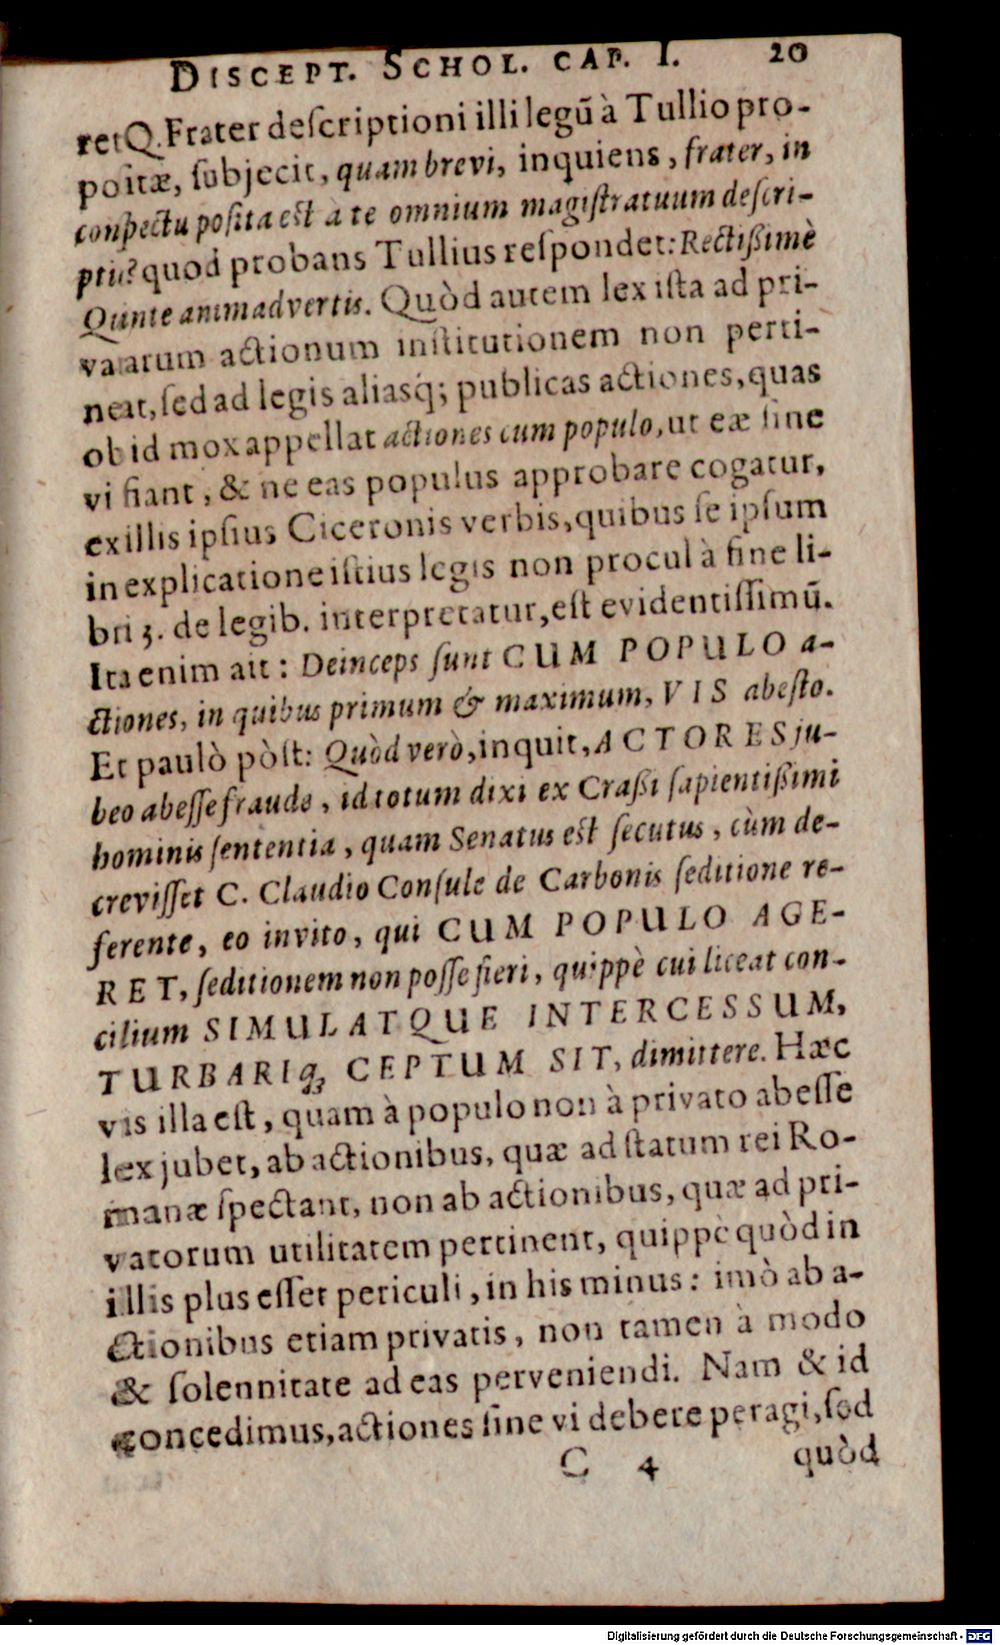 DISCEPT. SCHOL. CAP. I. 20
ret Q. Frater deſcriptioni illi legū à Tullio pro-
poſitæ, ſubjecit, quam brevi, inquiens, frater, in
conſpectu poſita eſt à te omnium magiſtratuum deſcri-
ptio? quod probans Tullius reſpondet: Rectißimè
Quinte animadvertis. Quòd autem lex iſta ad pri-
vatarum actionum inſtitutionem non perti-
neat, ſed ad legis aliasq́; publicas actiones, quas
ob id mox appellat actiones cum populo, ut eæ ſine
vi fiant, & ne eas populus approbare cogatur,
ex illis ipſius Ciceronis verbis, quibus ſe ipſum
in explicatione iſtius legis non procul à fine li-
bri 3. de legib. interpretatur, eſt evidentiſſimū.
Ita enim ait: Deinceps ſunt CUM POPULO a-
ctiones, in quibus primum & maximum, VIS abeſto.
Et paulò pòſt: Quòd verò, inquit, ACTORES ju-
beo abeſſe fraude, id totum dixi ex Craßi ſapientißimi
hominis ſententia, quam Senatus eſt ſecutus, cùm de-
creviſſet C. Claudio Conſule de Carbonis ſeditione re-
ferente, eo invito, qui CUM POPULO AGE-
RET, ſeditionem non poſſe fieri, quippè cui liceat con-
cilium SIMULATQUE INTERCESSUM,
TURBARIq; CEPTUM SIT, dimittere. Hæc
vis illa eſt, quam à populo non à privato abeſſe
lex jubet, ab actionibus, quæ ad ſtatum rei Ro-
manæ ſpectant, non ab actionibus, quæ ad pri-
vatorum utilitatem pertinent, quippè quòd in
illis plus eſſet periculi, in his minus: imò ab a-
ctionibus etiam privatis, non tamen à modo
& ſolennitate ad eas perveniendi. Nam & id
concedimus, actiones ſine vi debere peragi, ſed
C 4 quòd
Digitalisierung gefördert durch die Deutsche Forschungsgemeinschaft - DFG